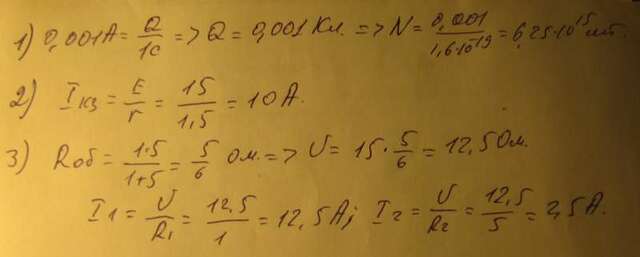 1) 0,001А = Q/1с => Q = 0,001 Кл. => N = 0,001/1,6·10⁻¹⁹ = 6,25·10¹⁵ шт.
2) Iкз = E/r = 15/1,5 = 10 А.
3) Rоб = 1·5/1+5 = 5/6 Ом. => U = 15·5/6 = 12,5 Ом.
I1 = U/R1 = 12,5/1 = 12,5А; I2 = U/R2 = 12,5/5 = 2,5А.